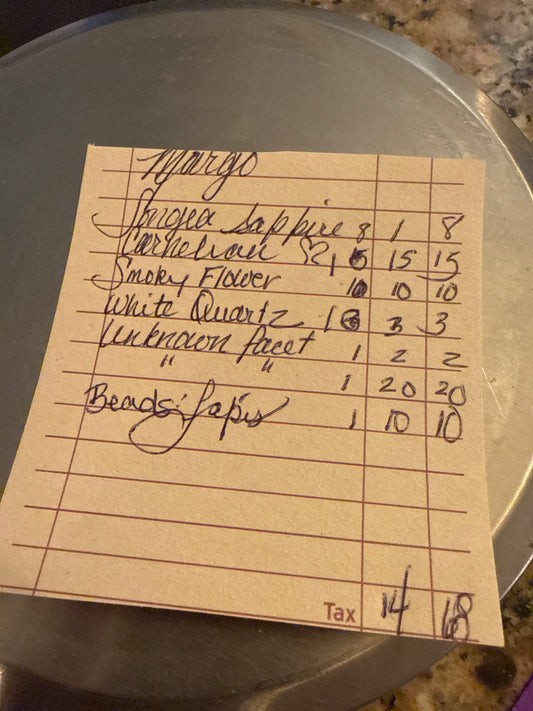 Margo
Songea Sapphire 8 1 8
Carnelian 1 15 15
Smoky Flower 10 10
White Quartz 1 3 3
Unknown facet 1 2 2
" " 1 20 20
Beads: Lapis 1 10 10
Tax 14 68